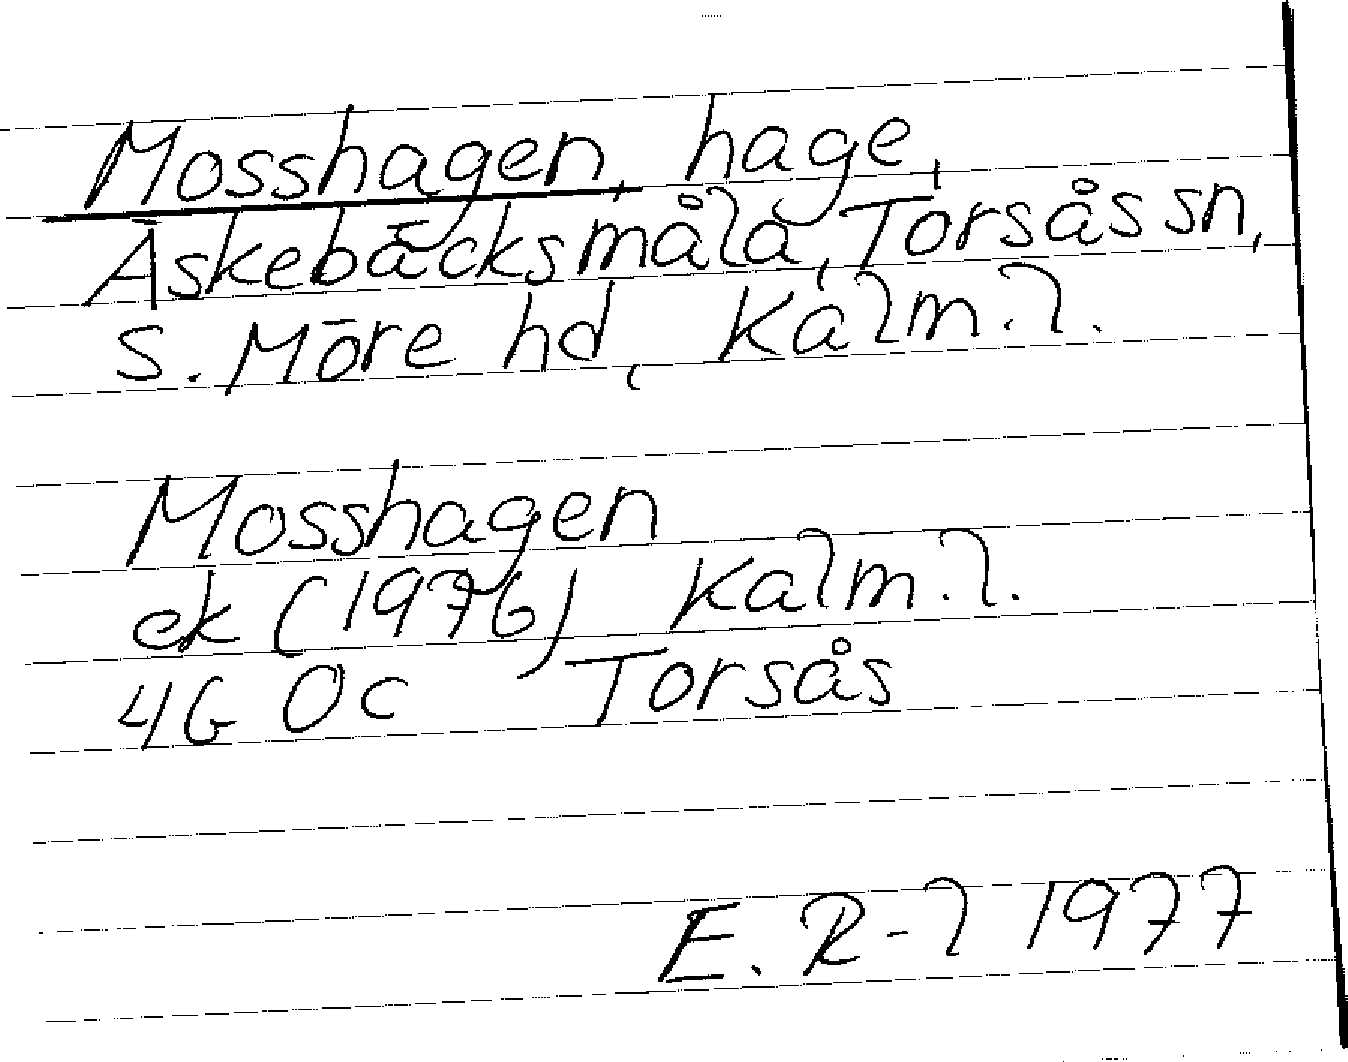 Mosshagen, hage,
Äskebäcksmåla, Torsås sn,
S. Möre hd, Kalm. l.
Mosshagen
ek (1976) Kalm. l.
4G 0c Torsås
E. R-l 1977